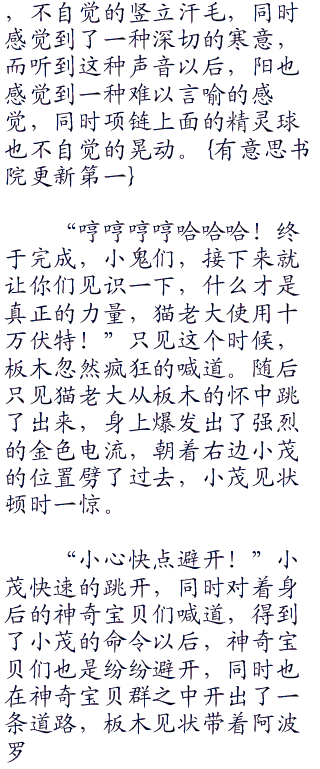 ，不自觉的竖立汗毛，同时
感觉到了一种深切的寒意，
而听到这种声音以后，阳也
感觉到一种难以言喻的感
觉，同时项链上面的精灵球
也不自觉的晃动。{有意思书
院更新第一}
“哼哼哼哼哈哈哈！终
于完成，小鬼们，接下来就
让你们见识一下，什么才是
真正的力量，猫老大使用十
万伏特！”只见这个时候，
板木忽然疯狂的喊道。随后
只见猫老大从板木的怀中跳
了出来，身上爆发出了强烈
的金色电流，朝着右边小茂
的位置劈了过去，小茂见状
顿时一惊。
“小心快点避开！”小
茂快速的跳开，同时对着身
后的神奇宝贝们喊道，得到
了小茂的命令以后，神奇宝
贝们也是纷纷避开，同时也
在神奇宝贝群之中开出了一
条道路，板木见状带着阿波
罗